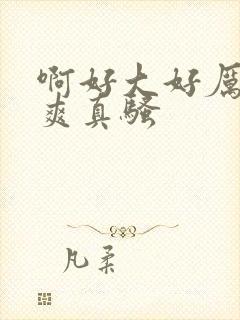 啊好大好厉
爽真骚
凡柔